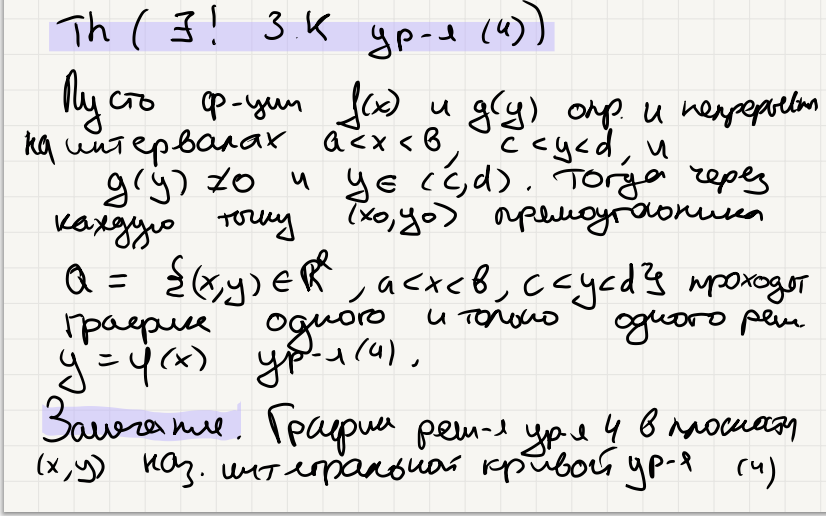 Th ( ∃! З.К ур-я (4))
Пусть ф-ции f(x) и g(y) опр. и непрерывн
на интервалах a<x<b, c<y<d, и
g(y) ≠0 и y∈ (c,d). Тогда через
каждую точку (x0,y0) прямоугольника
Q = {(x,y) ∈ R², a<x<b, c<y<d} проходит
график одного и только одного реш.
y = φ(x) ур-я (4).
Замечание. График реш-я ур-я 4 в плоскости
(x,y) наз. интегральной кривой ур-я (4)